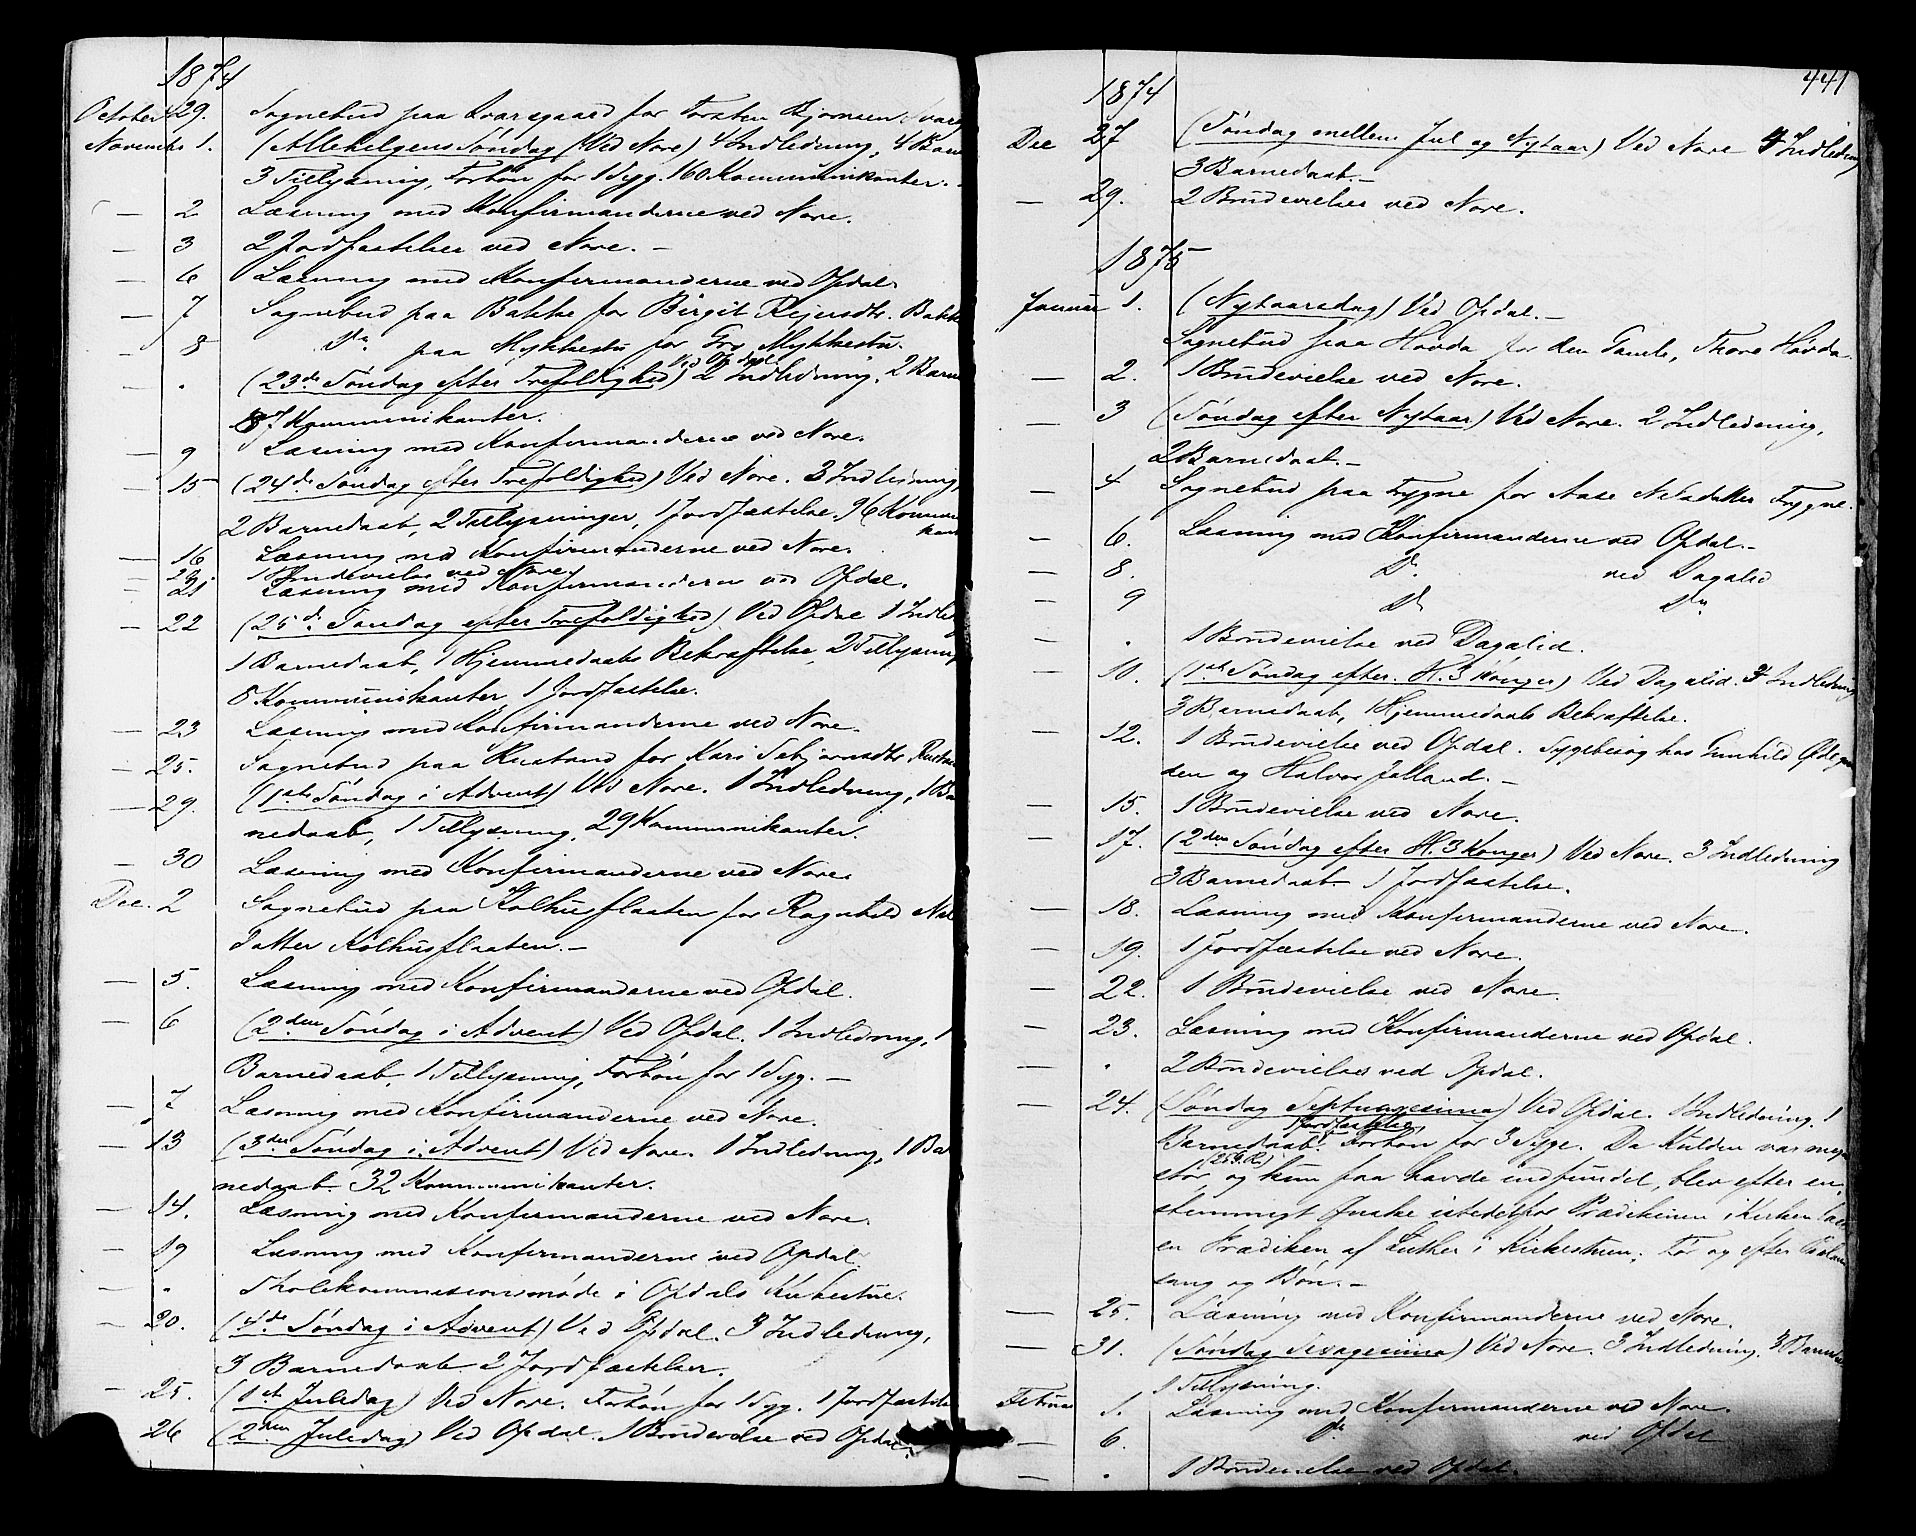 1874
October 29. Sognebud paa Kvarsgaard for Torsten Bjørnsen
November 1. (Allehelgens Søndag) (Ved Nore) 4 Indledning, 4 Barn
3 Tillysning, Forbøn for 1 Syg. 160 Kommunikanter. -
— 2 Læsning med Konfirmanderne ved Nore.
— 3 2 Jordfæstelser ved Nore. —
— 6 Læsning med Konfirmanderne ved Opdal.
— 7 Sognebud paa Bakke for Birgit Reiersdtr. Bakke
— 8 Do paa Mykkestu for Gro Mykkestu.
— . (23de Søndag efter Trefoldighed) Ved Opdal 2 Indledning, 2 Barne
87 Kommunikanter.
— 9 Læsning med Konfirmanderne ved Nore.
— 15 (24de Søndag efter Trefoldighed) Ved Nore. 3 Indledning,
2 Barnedaab, 2 Tillysninger, 1 Jordfæstelse. 96 Kommuni
kant
— 16 Læsning med Konfirmanderne ved Nore.
1 Brudevielse ved Nore.
— 21 Læsning med Konfirmanderne ved Opdal.
— 22 (25de Søndag efter Trefoldighed) Ved Opdal 1 Indled
1 Barnedaab, 1 Hjemmedaabs Bekræftelse, 2 Tillysning
8 Kommunikanter, 1 Jordfæstelse.
— 23 Læsning med Konfirmanderne ved Nore.
— 25. Sognebud paa Rustand for Kari Sebjørnsdtr. Rustan
— 29. (1ste Søndag i Advent) Ved Nore. 1 Indledning, 1 Bar
nedaab, 1 Tillysning, 29 Kommunikanter.
— 30 Læsning med Konfirmanderne ved Nore.
Dec. 2 Sognebud paa Kolhusflaaten for Ragnhild Nils
Datter Kolhusflaaten. —
— 5. Læsning med Konfirmanderne ved Opdal.
— 6 (2den Søndag i Advent) Ved Opdal. 1 Indledning, 1
Barnedaab, 1 Tillysning, Forbøn for 1 Syg. —
— 7 Læsning med Konfirmanderne ved Nore.
— 13 (3die Søndag i Advent) Ved Nore. 1 Indledning, 1 Bar
nedaab. 32 Kommunikanter.
— 14. Læsning med Konfirmanderne ved Nore.
— 19 Læsning med Konfirmanderne ved Opdal.
— . Skolekommissionsmøde i Opdals Kirkestue.
— 20. (4de Søndag i Advent) Ved Opdal. 3 Indledning,
3 Barnedaab 2 Jordfæstelser.
— 25. (1ste Juledag) Ved Nore. Forbøn for 1 Syg. 1 Jordfæstelse
26 (2den Juledag) Ved Opdal. 1 Brudevielse ved Opdal.
441
1874
Dec 27 (Søndag mellem Jul og Nytaar) Ved Nore 4 Indledning
3 Barnedaab. —
— 29. 2 Brudevielser ved Nore.
1875
Januar 1. (Nytaarsdag) Ved Opdal. —
Sognebud paa Hovda for den Gamle, Thore Hovda.
— 2. 1 Brudevielse ved Nore.
— 3 (Søndag efter Nytaar) Ved Nore. 2 Indledning,
2 Barnedaab. —
— 4 Sognebud paa Frygne for Aase Datter Frygne.
— 6. Læsning med Konfirmanderne ved Opdal. —
— 8. Do. ved Dagalid
— 9 Do Do
— . 1 Brudevielse ved Dagalid.
— 10. (1ste Søndag efter H. 3 Konger) Ved Dagalid. 3 Indledning
3 Barnedaab, 1 Hjemmedaabs Bekræftelse.
— 12. 1 Brudevielse ved Opdal. Sygebesøg hos Gunhild Ødegaar
den og Halvor Jølland. —
— 15. 1 Brudevielse ved Nore.
— 17. (2den Søndag efter H. 3 Konger) Ved Nore. 3 Indledning
3 Barnedaab 1 Jordfæstelse.
— 18. Læsning med Konfirmanderne ved Nore.
— 19. 1 Jordfæstelse ved Nore.
— 22. 1 Brudevielse ved Nore.
— 23. Læsning med Konfirmanderne ved Opdal.
— . 2 Brudevielser ved Opdal.
— 24. (Søndag Septuagesima) Ved Opdal. 1 Indledning. 1
Barnedaab. 1 Jordfæstelse, Forbøn for 3 Syge. Da Kulden var meget
stor (25 G. R.), og kun faa havde indfundet, blev efter en
stemmigt Ønske istedetfor Prædikenen i Kirken læst
en Prædiken af Luther i Kirkestuen; Før og efter
sang og Bøn. —
— 25. Læsning med Konfirmanderne ved Nore.
— 31. (Søndag Sexagesima) Ved Nore. 3 Indledning, 3 Barneda
1 Tillysning.
Februar 1. Læsning med Konfirmanderne ved Nore.
— 6. Do ved Opdal
— . 1 Brudevielse ved Opdal.